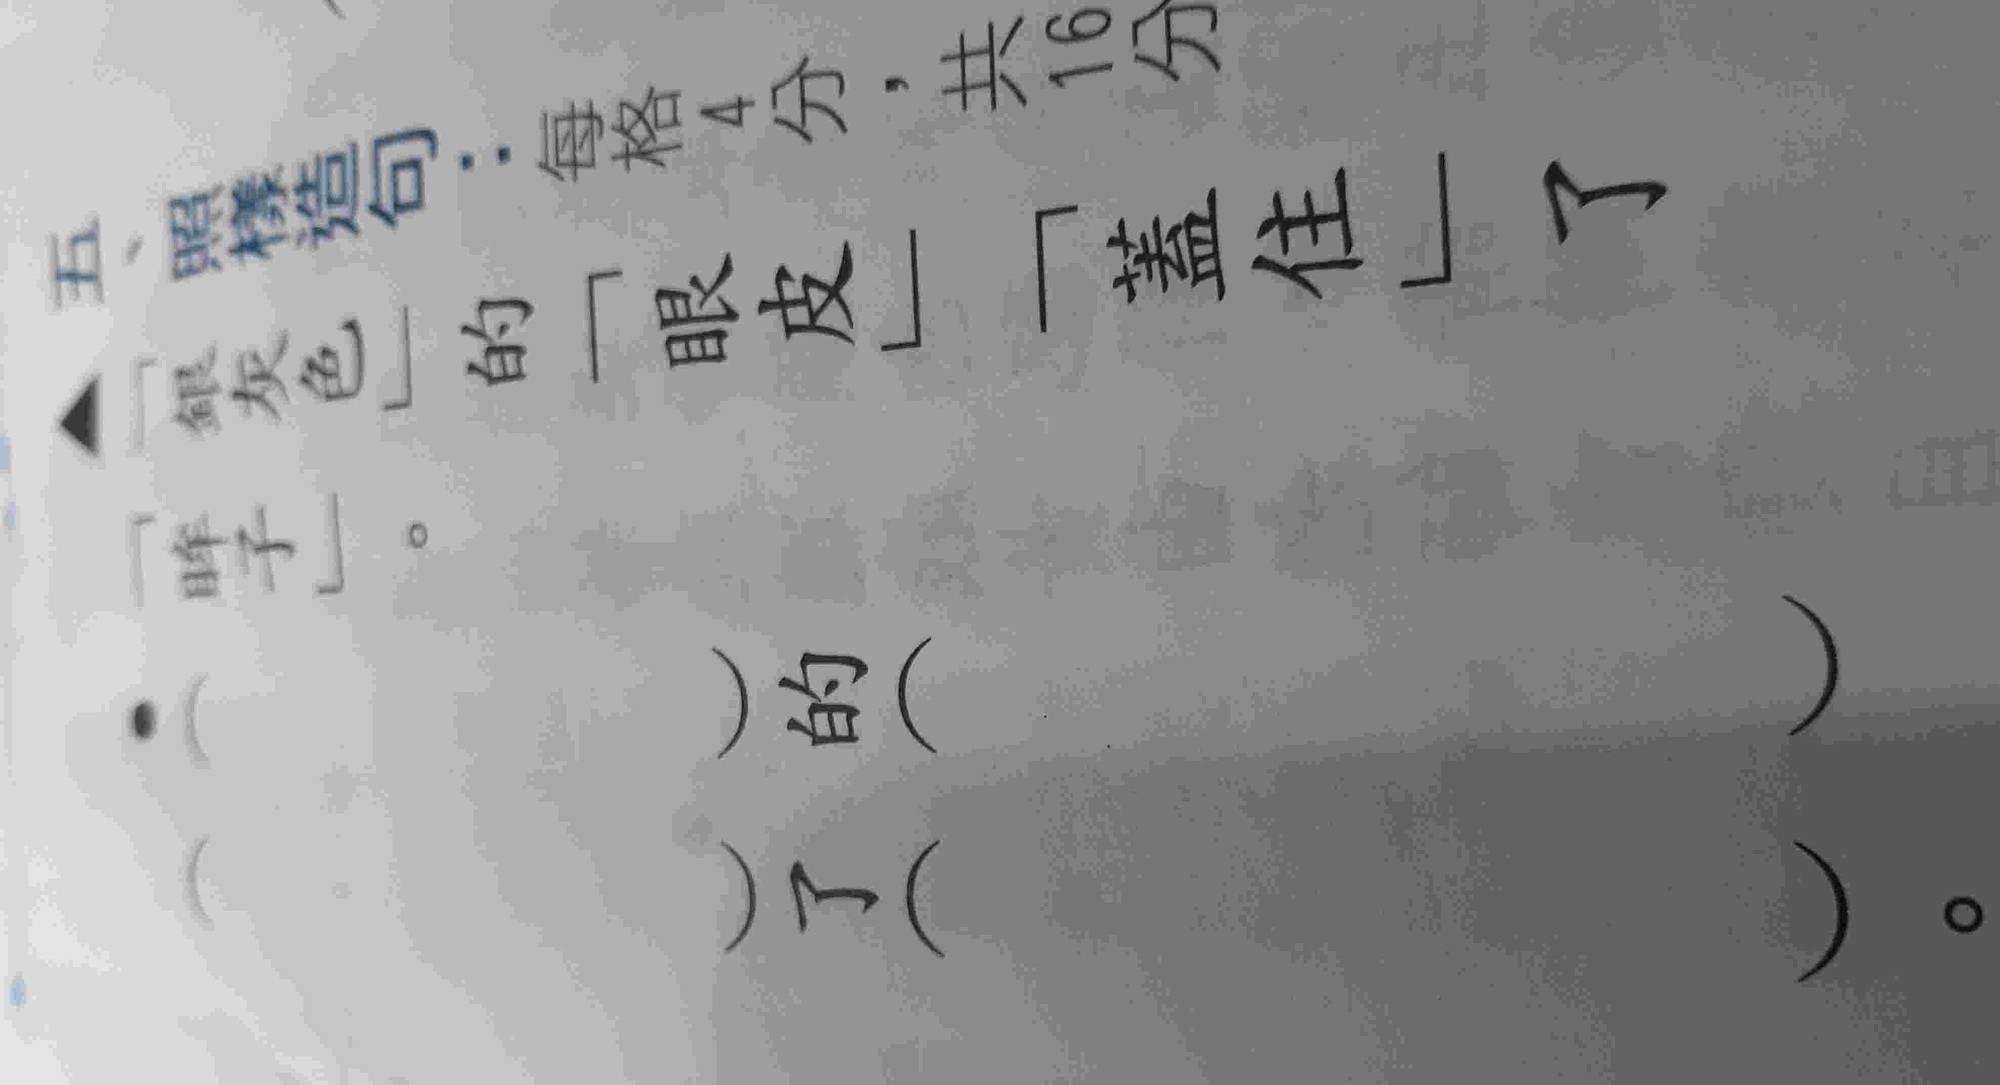 五、照樣造句：每格4分，共16分
▲「銀灰色」的「眼皮」「蓋住」了
「眸子」。
●（　　　）的（　　　）
（　　　）了（　　　）。